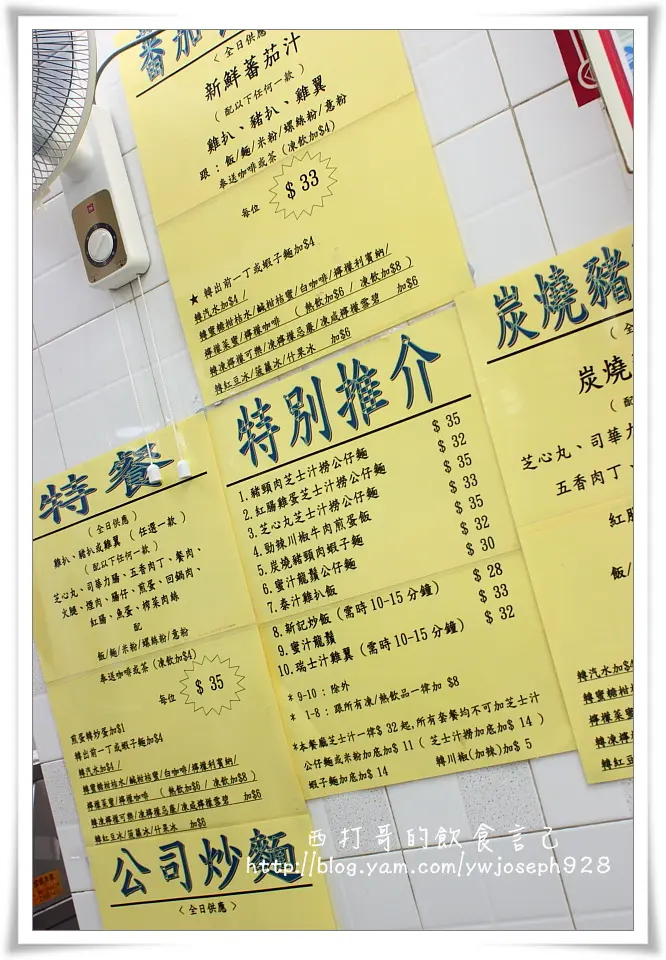 蕃茄
< 全日供應 >
新鮮蕃茄汁
( 配以下任何一款 )
雞扒、豬扒、雞翼
跟：飯/麵/米粉/螺絲粉/意粉
奉送咖啡或茶 (凍飲加$4)
每位
$ 33
★ 轉出前一丁或蝦子麵加$4
轉汽水加$4 /
轉蜜糖柑桔水/鹹柑桔蜜/白咖啡/檸檬利賓納/
檸檬菜蜜/檸檬咖啡 ( 熱飲加$6 / 凍飲加$8 )
轉凍檸檬可樂/凍檸檬忌廉/凍咸檸檬雪碧 加$6
轉紅豆冰/菠蘿冰/什果冰 加$6
特別推介
1.豬頸肉芝士汁撈公仔麵 $ 35
2.紅腸雞蛋芝士汁撈公仔麵 $ 32
3.芝心丸芝士汁撈公仔麵 $ 35
4.勁辣川椒牛肉煎蛋飯 $ 33
5.炭燒豬頸肉蝦子麵 $ 35
6.蜜汁龍鬚公仔麵 $ 32
7.泰汁雞扒飯 $ 30
8.新記炒飯 (需時10-15分鐘) $ 28
9.蜜汁龍鬚 $ 33
10.瑞士汁雞翼 (需時10-15分鐘) $ 32
* 9-10 : 除外
* 1-8 : 跟所有凍/熱飲品一律加 $8
*本餐廳芝士汁一律$ 32起,所有套餐均不可加芝士汁
公仔麵或米粉加底加$ 11 ( 芝士汁撈加底加$ 14 )
蝦子麵加底加$ 14 轉川椒(加辣)加$ 5
特餐
( 全日供應 )
雞扒、豬扒或雞翼 ( 任選一款 )
( 配以下任何一款 )
芝心丸、司華力腸、五香肉丁、餐肉、
火腿、煙肉、腸仔、煎蛋、回鍋肉、
紅腸、魚蛋、榨菜肉絲
配
飯/麵/米粉/螺絲粉/意粉
奉送咖啡或茶 (凍飲加$4)
每位
$ 35
煎蛋轉炒蛋加$1
轉出前一丁或蝦子麵加$4
轉汽水加$4 /
轉蜜糖柑桔水/鹹柑桔蜜/白咖啡/檸檬利賓納/
檸檬菜蜜/檸檬咖啡 ( 熱飲加$6 / 凍飲加$8 )
轉凍檸檬可樂/凍檸檬忌廉/凍咸檸檬雪碧 加$6
轉紅豆冰/菠蘿冰/什果冰 加$6
炭燒豬
( 全
炭燒
( 配
芝心丸、司華力
五香肉丁、
紅腸
飯/
轉汽水加$4
轉蜜糖柑桔
檸檬菜蜜
轉凍檸檬
轉紅豆
公司炒麵
< 全日供應 >
西打哥的飲食言己
http://blog.yam.com/ywjoseph928